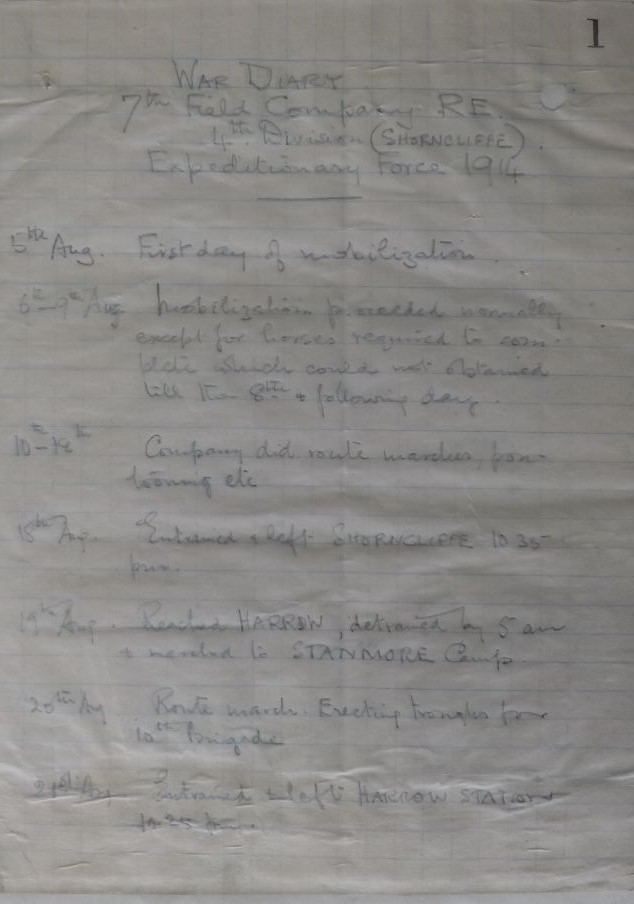 1
WAR DIARY
7th Field Company RE.
4th Division (SHORNCLIFFE).
Expeditionary Force 1914
5th Aug. First day of mobilization.
6th-9th Aug. Mobilization proceeded normally
except for horses required to com-
plete which could not obtained
till the 8th & following day.
10th- Company did route marches, pon-
tooning etc
Aug. Entrained & left SHORNCLIFFE 10 35
pm.
19th Aug. Reached HARROW, detrained by 5 am
& marched to STANMORE Camp
20th Aug Route march. Erecting troughs for
10th Brigade
21st Aug Entrained & left HARROW STATION